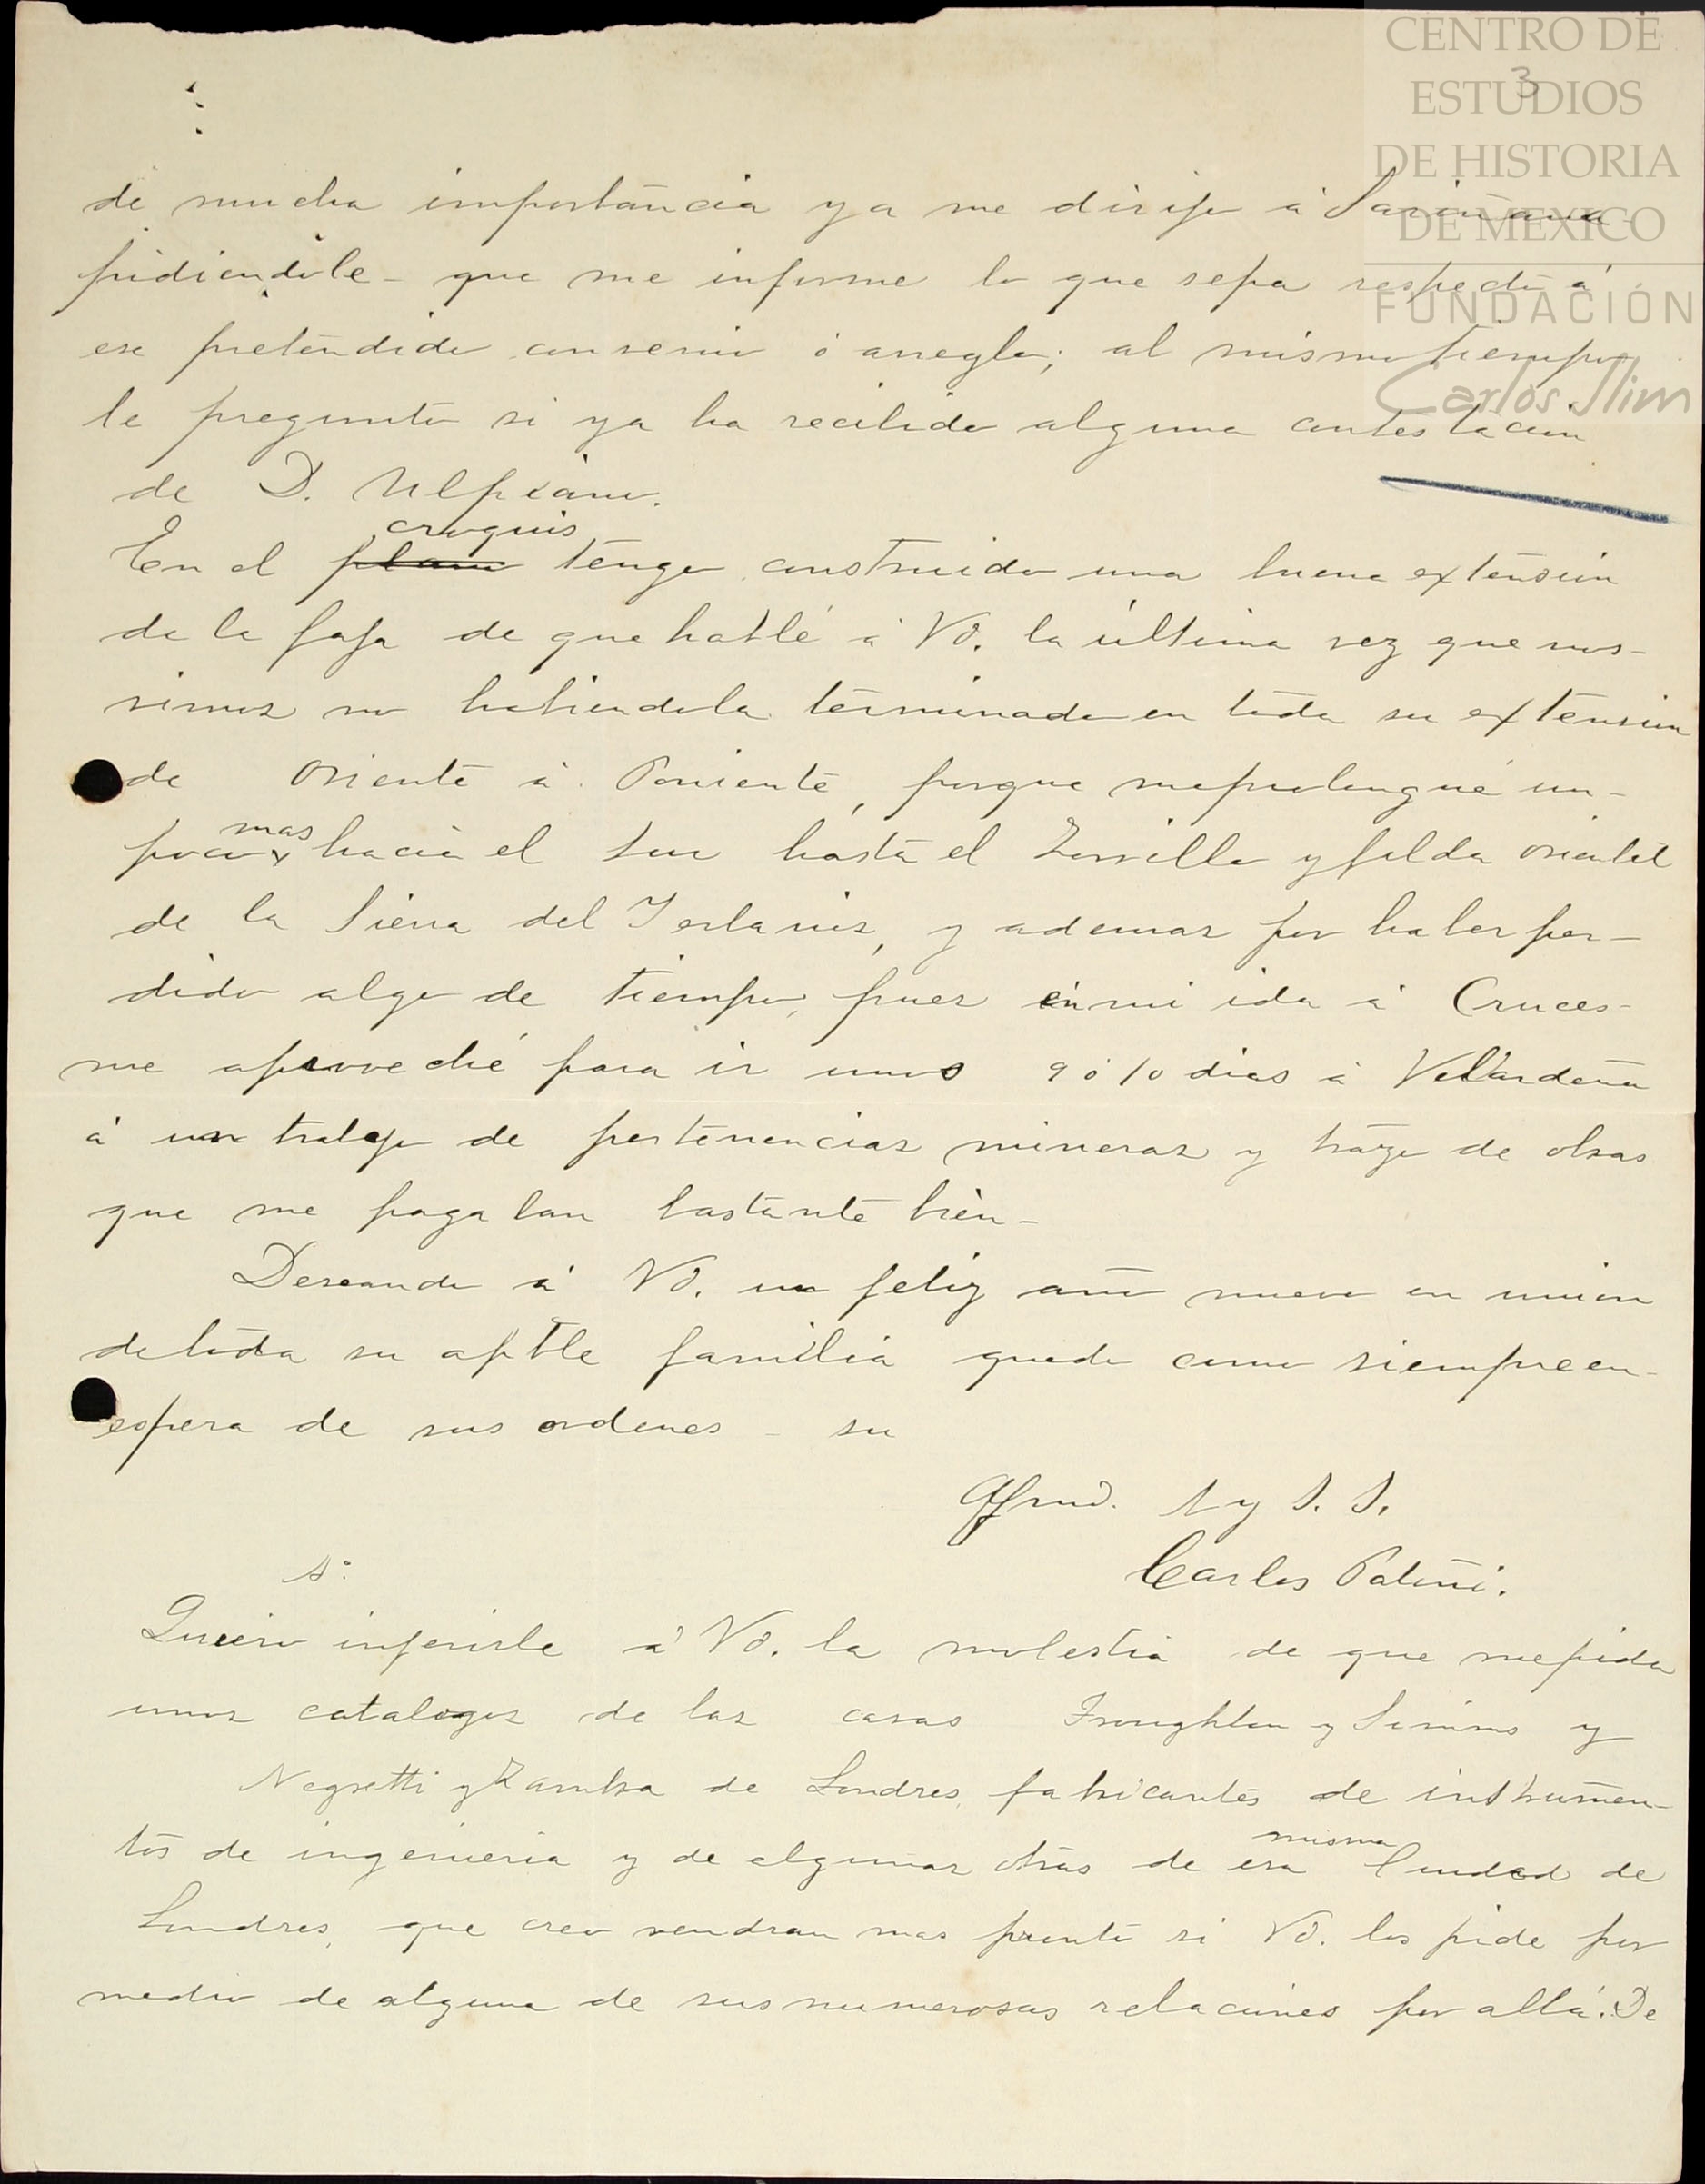 CENTRO DE
ESTUDIOS
DE HISTORIA
DE MEXICO
FUNDACIÓN
Carlos Slim
3
de mucha importancia ya me dirijo á Sariñana
pidiendole - que me informe lo que sepa respecto á
ese pretendido convenio ó arreglo; al mismo tiempo
le pregunto si ya ha recibido alguna contestacion
de D. Ulpiano.
croquis
En el plano tengo construido una buena extension
de la faja de que hablé á Vd. la última vez que nos-
vimos no habiendola terminado en toda su extension
de Oriente á Poniente, porque me prolongué un-
mas
poco x hacia el Sur hasta el Zorrillo y falda oriental
de la Sierra del y ademas por haber per-
dido algo de tiempo, pues en mi ida á Cruces-
me aproveché para ir unos 9 ó 10 dias á Velardeña
á un trabajo de pertenencias mineras y trazo de obras
que me pagaban bastante bien-
Deseando á Vd. un feliz año nuevo en union
de toda su aptble familia quedo como siempre en-
espera de sus ordenes - su
Afmo. A y S. S.
Carlos Patoni.
A:
Quiero inferirle á Vd. la molestia de que me pida
unos catalogos de las casas Troughton y Simms y
Negretti y Zambra de Londres, fabricantes de instrumen-
tos de ingenieria y de algunas otras de esa Ciudad de
misma
Londres, que creo vendran mas pronto si Vd. los pide por
medio de alguna de sus numerosas relaciones por allá. De